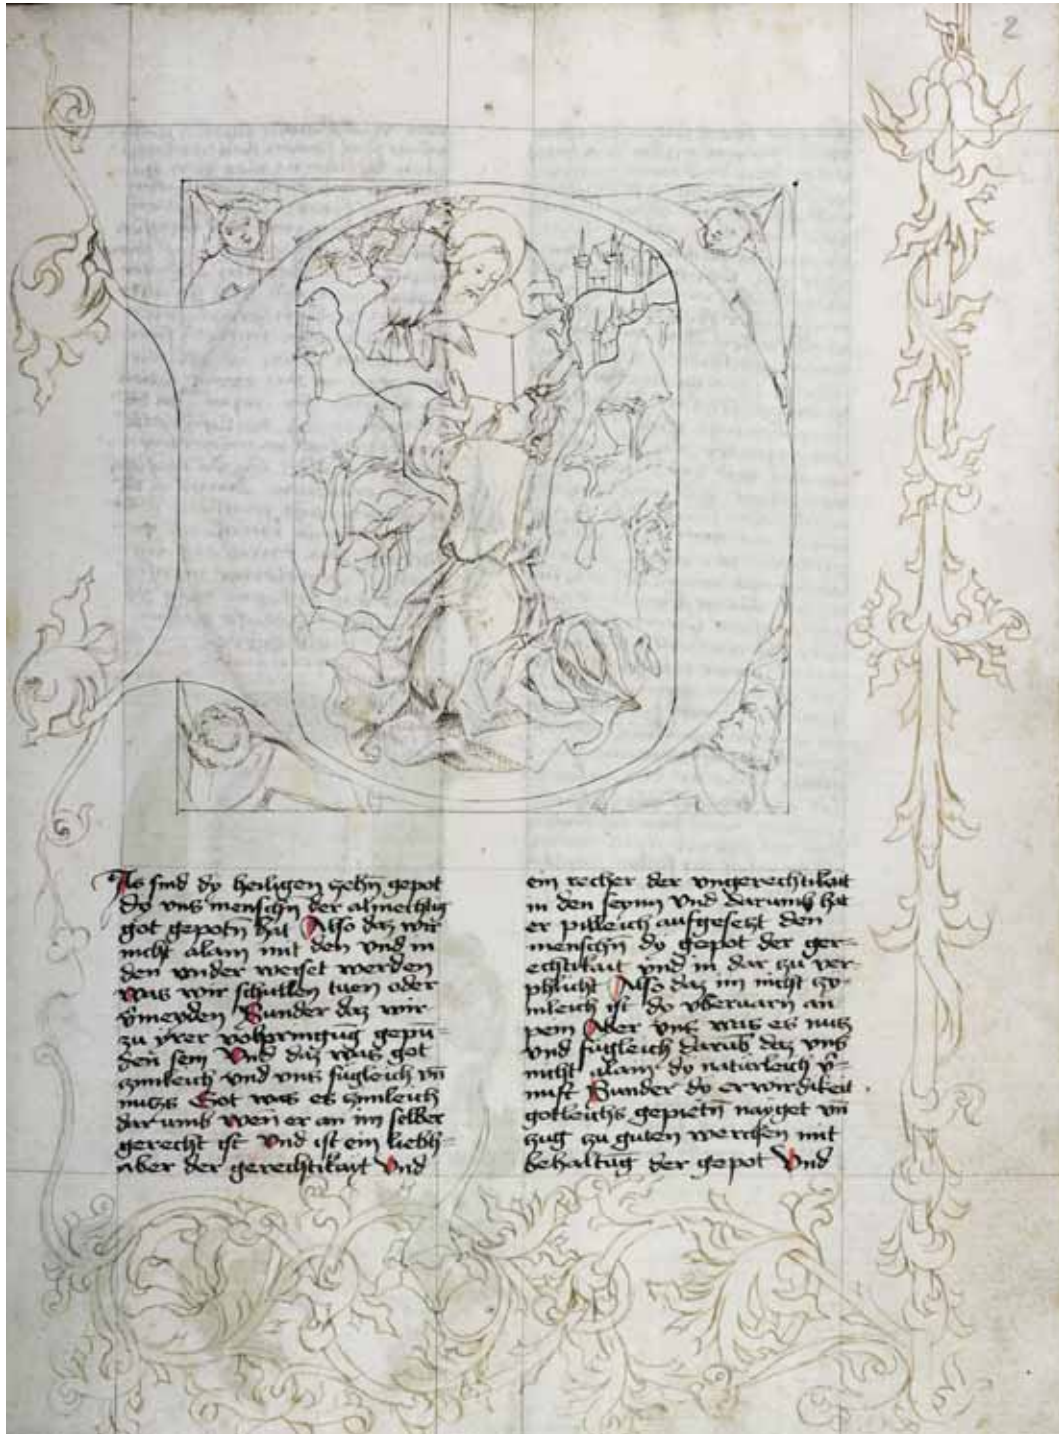 2
As sind dy heiligen zehn̄ gepot
do vns menschn̄ der almechtig
got gepotn̄ hat Also daz wir
nicht alain mit den vnd in
den vnder weiset werden
was wir schullen tuen oder
v̄meyden Sunder daz wir
zu yrer volpringūg gepū-
den sein Vnd daz was got
zimleich vnd vns fugleich vn̄
nutzs Got was es zimleich
dar umb wen er an im selber
gerecht ist Vnd ist ein liebh-
aber der gerechtikayt Vnd
ein recher der vngerechtikait
in den seynn Vnd darumb hat
er pilleich aufgesetzt den
menschn̄ dy gepot der ger-
echtikait vnd in dar zu ver-
phlicht Also daz im nicht zy-
mleich ist do vberuarn an
pein Aber vns was es nutz
vnd fugleich darūb daz vns
nicht alain do naturleich v̄-
nuft Sunder do erwirdikeit
gotleichs gepietn̄ nayget vn̄
zug zu guten wercken mit
behaltūg der gepot Vnd